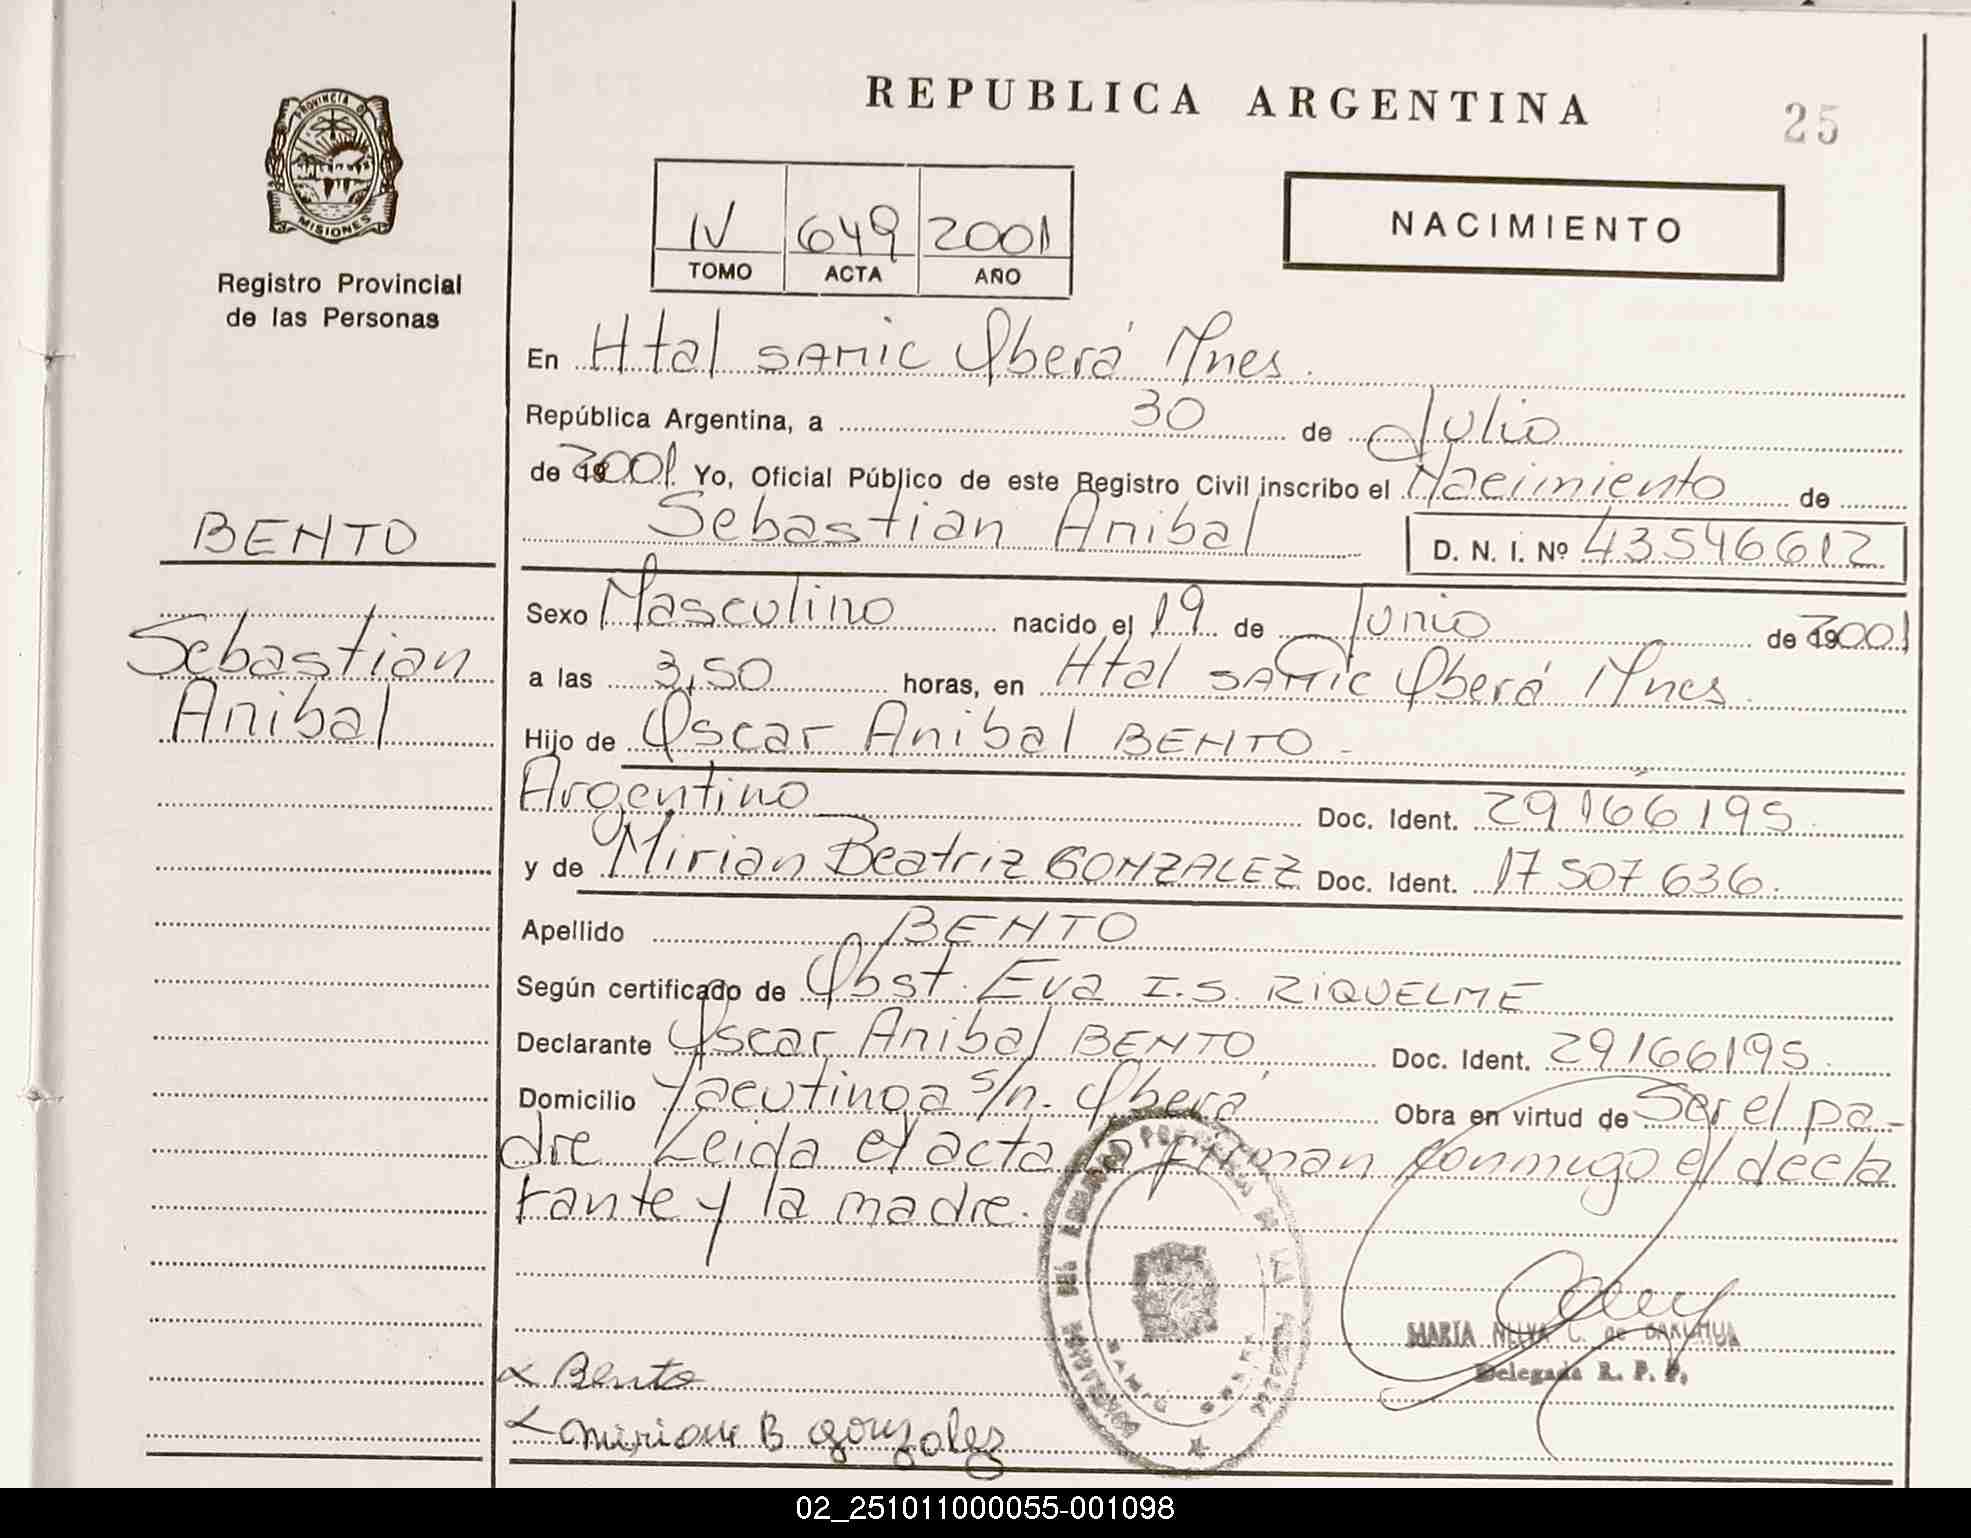 REPUBLICA ARGENTINA
25
PROVINCIA DE
MISIONES
Registro Provincial
de las Personas
IV 649 2001
TOMO ACTA AÑO
NACIMIENTO
En Htal SAMIC Oberá Mnes.
República Argentina, a 30 de Julio
de 2001. Yo, Oficial Público de este Registro Civil inscribo el Nacimiento de
Sebastian Anibal D. N. I. Nº 43546612
BENTO
Sebastian
Anibal
Sexo Masculino nacido el 19 de Junio de 2001
a las 3,50 horas, en Htal SAMIC Oberá Mnes.
Hijo de Oscar Anibal BENTO -
Argentino Doc. Ident. 29166195.
y de Mirian Beatriz GONZALEZ Doc. Ident. 17 507 636.
Apellido BENTO
Según certificado de Obst. Eva I.S. RIQUELME
Declarante Oscar Anibal BENTO Doc. Ident. 29166195
Domicilio Yacutinga s/n. Oberá Obra en virtud de Ser el pa-
dre Leida el acta la firman conmigo el decla
rante y la madre.
MARIA C. de
Delegada R. P. P.
x Bento
x B gonzalez
02_251011000055-001098